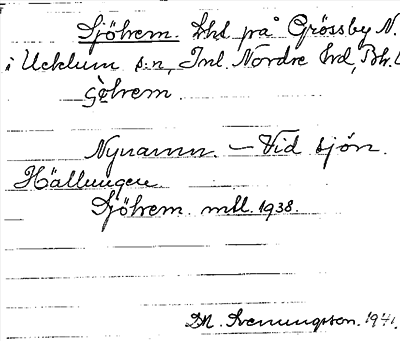 Sjöhem. Lht på Grössby N.
i Ucklum s:n, Inl. Nordre hd, Bh. l
çòhem.
Nynamn. – Vid sjön
Hällungen.
Sjöhem mtl. 1938.
D.A. Svenungsson. 1941.